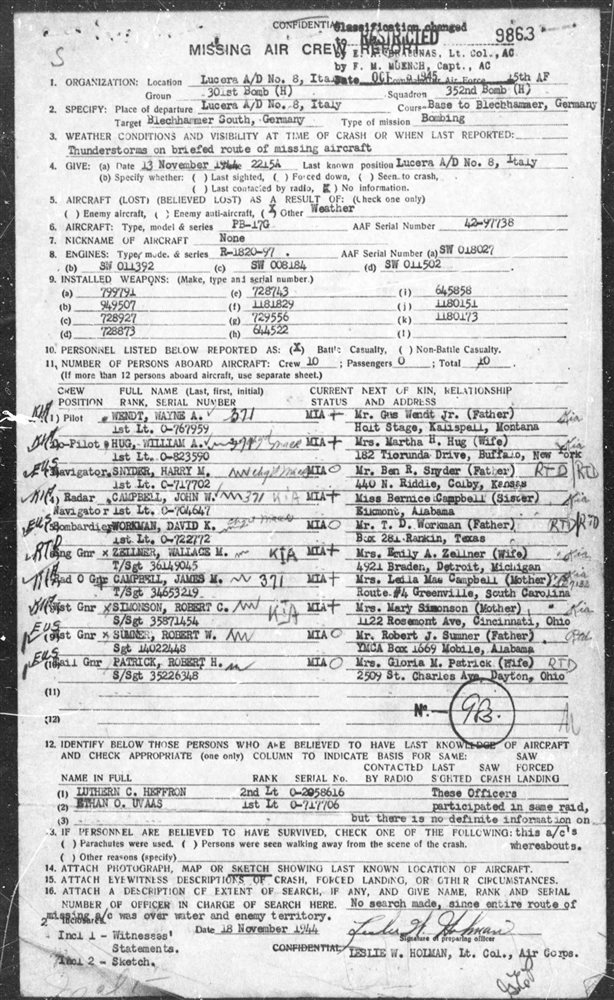 CONFIDENTIAL Classification changed
to RESTRICTED 9863
S MISSING AIR CREW REPORT by E. A. BRADUNAS, Lt. Col., AC
by F. M. MUENCH, Capt., AC
Date OCT 1945
1. ORGANIZATION: Location Lucera A/D No. 8, Italy Command or Air Force 15th AF
Group 301st Bomb (H) Squadron 352nd Bomb (H)
2. SPECIFY: Place of departure Lucera A/D No. 8, Italy Course Base to Blechhammer, Germany
Target Blechhammer South, Germany Type of mission Bombing
3. WEATHER CONDITIONS AND VISIBILITY AT TIME OF CRASH OR WHEN LAST REPORTED:
Thunderstorms on briefed route of missing aircraft
4. GIVE: (a) Date 13 November 1944 Time 2215A Last known position Lucera A/D No. 8, Italy
(b) Specify whether: ( ) Last sighted, ( ) Forced down, ( ) Seen to crash,
( ) Last contacted by radio, (X) No information.
5. AIRCRAFT (LOST) (BELIEVED LOST) AS A RESULT OF: (Check one only)
( ) Enemy aircraft, ( ) Enemy anti-aircraft, (X) Other Weather
6. AIRCRAFT: Type, model & series PB-17G AAF Serial Number 42-97738
7. NICKNAME OF AIRCRAFT None
8. ENGINES: Type, mode. & series R-1820-97 . AAF Serial Number (a) SW 018027
(b) SW 011392 (c) SW 008184 (d) SW 011502
9. INSTALLED WEAPONS: (Make, type and serial number.)
(a) 799791 (e) 728743 (i) 645858
(b) 949507 (f) 1181829 (j) 1180151
(c) 728927 (g) 729556 (k) 1180173
(d) 728873 (h) 644522 (l)
10. PERSONNEL LISTED BELOW REPORTED AS: (X) Battle Casualty, ( ) Non-Battle Casualty.
11. NUMBER OF PERSONS ABOARD AIRCRAFT: Crew 10 ; Passengers 0 ; Total 10
(If more than 12 persons aboard aircraft, use separate sheet.)
CREW FULL NAME (Last, first, initial) CURRENT NEXT OF KIN, RELATIONSHIP
POSITION RANK, SERIAL NUMBER STATUS AND ADDRESS
KIA (1) Pilot WENDT, WAYNE A. 371 MIA + Mr. Gus Wendt Jr. (Father) Kia
1st Lt. O-767959 Hoit Stage, Kalispell, Montana
Co-Pilot HUG, WILLIAM A. MIA + Mrs. Martha H. Hug (Wife) Kia
1st Lt. O-823590 182 Tiorunda Drive, Buffalo, New York
EUS Navigator SNYDER, HARRY M. MIA O Mr. Ben R. Snyder (Father) RTD RTD
1st Lt. O-717702 440 N. Riddle, Colby, Kansas
KIA Radar CAMPBELL, JOHN W. 371 KIA MIA + Miss Bernice Campbell (Sister) Kia
Navigator 1st Lt. O-704647 Elkmont, Alabama
EUS Bombardier WORKMAN, DAVID K. MIA O Mr. T. D. Workman (Father) RTD RTD
1st Lt. O-722772 Box 281 Rankin, Texas
RTD Eng Gnr x ZELLNER, WALLACE M. KIA MIA + Mrs. Emily A. Zellner (Wife) Kia
T/Sgt 36149045 4921 Braden, Detroit, Michigan
KIA Rad O Gnr CAMPBELL, JAMES M. 371 MIA + Mrs. Leila Mae Campbell (Mother) Kia
T/Sgt 34653219 Route #4 Greenville, South Carolina
KIA Wst Gnr x SIMONSON, ROBERT C. KIA MIA + Mrs. Mary Simonson (Mother) Kia
S/Sgt 35871454 1122 Rosemont Ave, Cincinnati, Ohio
EUS (9) Wst Gnr x SUMNER, ROBERT W. MIA O Mr. Robert J. Sumner (Father)
Sgt 14022448 YMCA Box 1669 Mobile, Alabama
EUS (10) Tail Gnr PATRICK, ROBERT H. MIA O Mrs. Gloria M. Patrick (Wife) RTD
S/Sgt 35226348 2509 St. Charles Ave, Dayton, Ohio
(11)
(12) No. 983.
12. IDENTIFY BELOW THOSE PERSONS WHO ARE BELIEVED TO HAVE LAST KNOWLEDGE OF AIRCRAFT
AND CHECK APPROPRIATE (one only) COLUMN TO INDICATE BASIS FOR SAME: SAW
CONTACTED LAST SAW FORCED
NAME IN FULL RANK SERIAL No. BY RADIO SIGHTED CRASH LANDING
(1) LUTHERN C. HEFFRON 2nd Lt O-2058616 These Officers
(2) ETHAN O. UVAAS 1st Lt O-717706 participated in same raid,
(3) but there is no definite information on
3. IF PERSONNEL ARE BELIEVED TO HAVE SURVIVED, CHECK ONE OF THE FOLLOWING: this a/c's
( ) Parachutes were used. ( ) Persons were seen walking away from the scene of the crash. whereabouts.
( ) Other reasons (specify)
14. ATTACH PHOTOGRAPH, MAP OR SKETCH SHOWING LAST KNOWN LOCATION OF AIRCRAFT.
15. ATTACH EYEWITNESS DESCRIPTIONS OF CRASH, FORCED LANDING, OR OTHER CIRCUMSTANCES.
16. ATTACH A DESCRIPTION OF EXTENT OF SEARCH, IF ANY, AND GIVE NAME, RANK AND SERIAL
NUMBER OF OFFICER IN CHARGE OF SEARCH HERE. No search made, since entire route of
missing a/c was over water and enemy territory.
2 Inclosures Date 18 November 1944 Leslie W. Holman
Incl 1 - Witnesses' Signature of preparing officer
Statements. CONFIDENTIAL LESLIE W. HOLMAN, Lt. Col., Air Corps.
Incl 2 - Sketch.